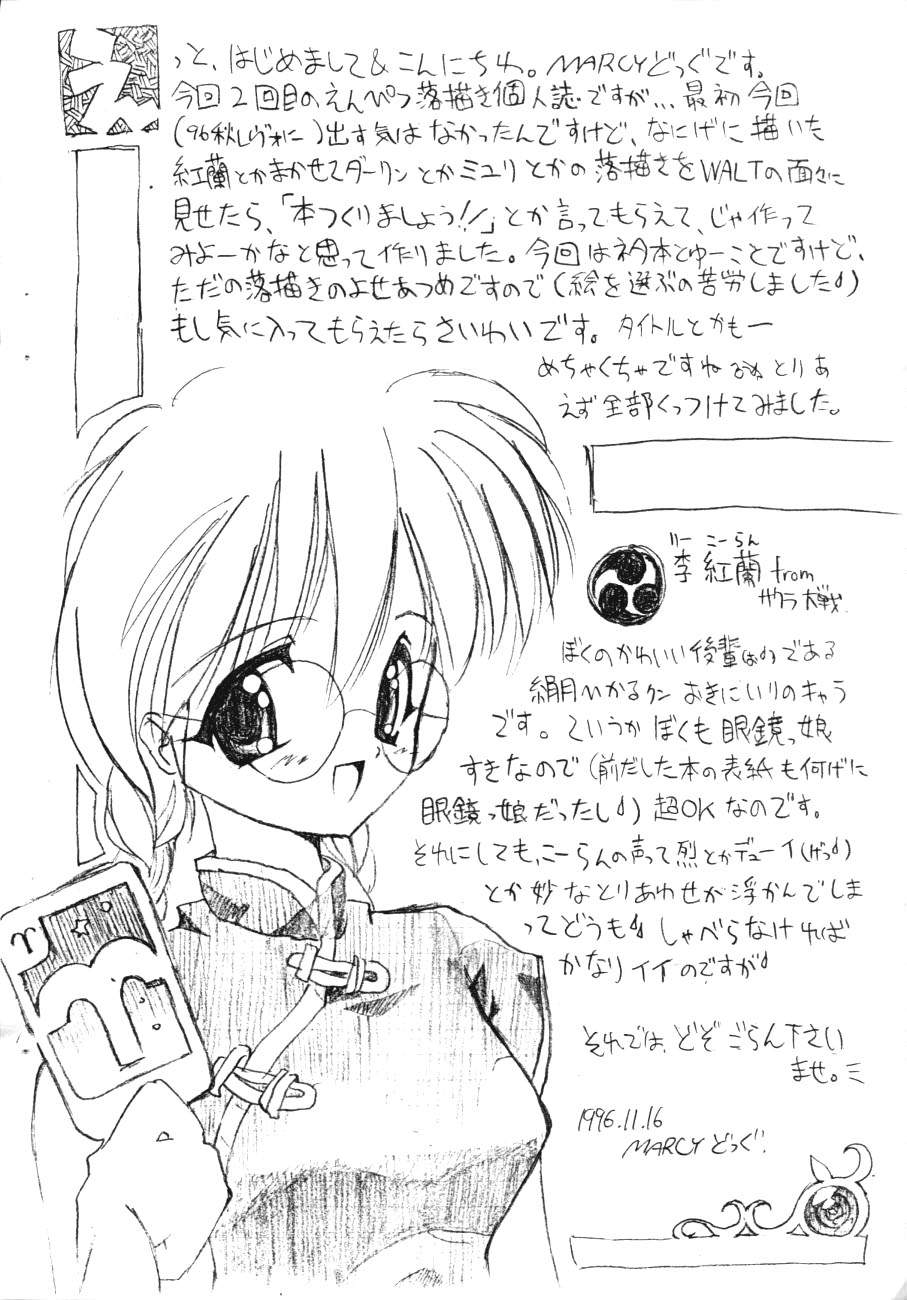 えっと、はじめまして&こんにちわ。MARCYどっぐです。
今回2回目のえんぴつ落描き個人誌ですが…最初今回
(96秋レヴォに)出す気はなかったんですけど、なにげに描いた
紅蘭とかまかせてダーリンとかミユリとかの落描きをWALTの面々に
見せたら、「本つくりましょう!!」とか言ってもらえて、じゃ作って
みよーかなと思って作りました。今回はネタ本とゆーことですけど、
ただの落描きのよせあつめですので(絵を選ぶの苦労しました♪)
もし気に入ってもらえたらさいわいです。タイトルとかもー
めちゃくちゃですね とりあ
えず全部くっつけてみました。
りー こーらん
李 紅蘭 from
サクラ大戦.
ぼくのかわいい後輩(はぁと)である
絹月ひかるクン おきにいりのキャラ
です。というか ぼくも眼鏡っ娘
すきなので(前だした本の表紙も何げに
眼鏡っ娘だったし♪)超OKなのです。
それにしても、こーらんの声って烈とかデューイ(げっ♪)
とか妙なとりあわせが浮かんでしま
ってどうも♪ しゃべらなければ
かなりイイのですが♪
それでは、どぞ ごらん下さい
ませ。
1996.11.16
MARCYどっぐ.